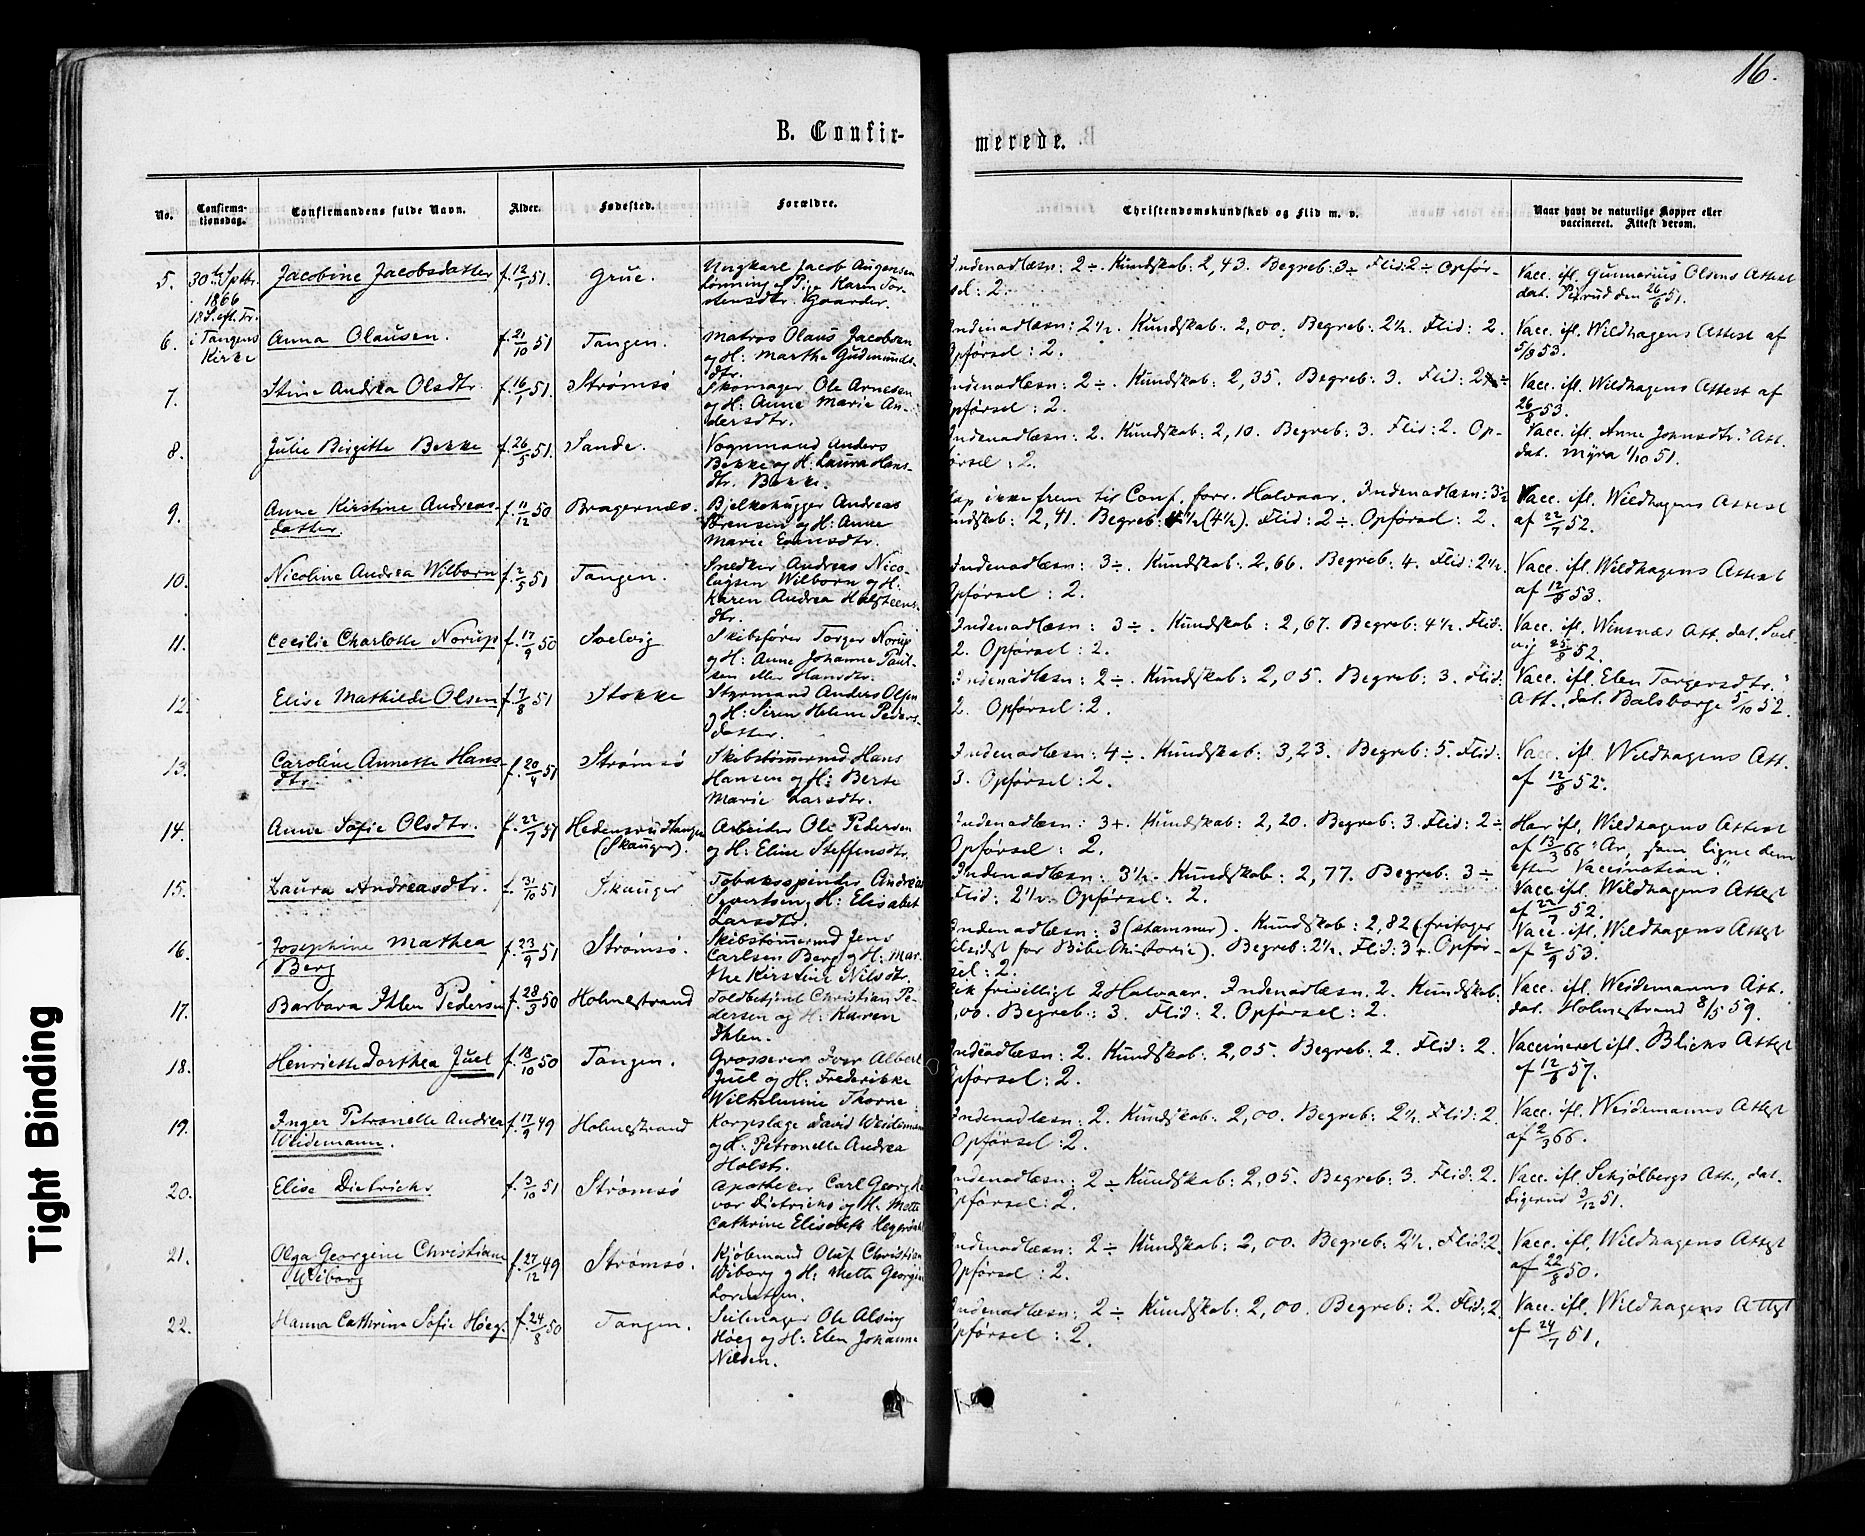 16.
B. Confir-
merede.
No. Confirma-tionsdag. Confirmandens fulde Navn. Alder. Fødested. Forældre. Christendomskundskab og Flid m. v. Naar havt de naturlige Kopper eller vaccineret. Attest derom.
5. 30te Sptbr. Jacobine Jacobsdatter f. 12/7 51. Grue. Ungkarl Jacob
1866 og Pige Karen Tor-
18 S. eft. Tr. stensdtr. Gaarder.
Indenadlæsn: 2 ÷. Kundskab: 2,43. Begreb: 3 ÷ Flid: 2 ÷ Opfør-
sel: 2.
Vacc. ifl. Gunnerius Olsens Attest
dat. den 26/6 51.
6. i Tangens Anna Olausen. f. 21/10 51 Tangen. Matros Olaus Jacobsen
Kirke og H: Marthe Gudmunds-
dtr.
Indenadlæsn: 2½. Kundskab: 2,00. Begreb: 2½. Flid: 2.
Opførsel: 2.
Vacc. ifl. Wildhagens Attest af
5/8 53.
7. Stine Andrea Olsdtr. f. 16/1 51. Strømsø Skomager Ole Arnesen
og H: Anne Marie An-
dersdtr.
Indenadlæsn: 2 ÷. Kundskab: 2,35. Begreb: 3. Flid: 2 ÷
Opførsel: 2.
Vacc. ifl. Wildhagens Attest af
26/8 53.
8. Julie Birgitte Bekke f. 26/5 51. Sande. Vognmand Anders
Bekke og H: Laura Hans-
dtr. Bekke.
Indenadlæsn: 2. Kundskab: 2,10. Begreb: 3. Flid: 2. Op-
ørsel: 2.
Vacc. ifl. Anne Johnsdtr.s Att.
dat. Myra 1/10 51.
9. Anne Kirstine Andreas- f. 11/12 50 Bragernæs. Bjelkehugger Andreas
datter. og H: Anne
Marie
ikke frem til Conf. forr. Halvaar. Indenadlæsn: 3½
undskab: 2,41. Begreb: 4½ (4½). Flid: 2 ÷. Opførsel: 2.
Vacc. ifl. Wildhagens Attest
af 22/7 52.
10. Nicoline Andrea Wilborn f. 2/5 51 Tangen. Snedker Andreas Nico-
laysen Wilborn og H:
Karen Andrea Holsteens-
dtr.
Indenadlæsn: 3 ÷. Kundskab: 2,66. Begreb: 4. Flid: 2½.
Opførsel: 2.
Vacc. ifl. Wildhagens Attest
af 12/8 53.
11. Cecilie Charlotte Norup f. 17/9 50 Svelvig Skibsfører Torger Norup
og H: Anne Johanne Paul-
sen eller Hansdtr.
Indenadlæsn: 3 ÷. Kundskab: 2,67. Begreb: 4½. Flid:
2. Opførsel: 2.
Vacc. ifl. Winsnæs Att. dat. Svel-
vig 25/8 52.
12. Elise Mathilde Olsen f. 7/8 51 Stokke Styrmand Anders Olsen
og H: Siren Helene Peders-
datter.
Indenadlæsn: 2 ÷. Kundskab: 2,05. Begreb: 3. Flid:
2. Opførsel: 2.
Vacc. ifl. Elen Torgersdtr.s
Att. dat. Balsborge 5/10 52.
13. Caroline Annette Hans- f. 20/4 51 Strømsø Skibstømmermd Hans
dtr. Hansen og H: Berte
Marie Larsdtr.
Indenadlæsn: 4 ÷. Kundskab: 3,23. Begreb: 5. Flid:
3. Opførsel: 2.
Vacc. ifl. Wildhagens Att.
af 12/8 52.
14. Anne Sofie Olsdtr. f. 22/7 51 (Skauger). Arbeider Ole Pedersen
og H: Eline Steffensdtr.
Indenadlæsn: 3+. Kundskab: 2,20. Begreb: 3. Flid: 2 ÷
Opførsel: 2.
Har ifl. Wildhagens Attest
af 13/3 66 "Ar, som ligne dem
efter Vaccination".
15. Laura Andreasdtr. f. 31/10 51 Skauger Tobaksspinder Andreas
Syvertsen og H: Elisabet
Larsdtr.
Indenadlæsn: 3½. Kundskab: 2,77. Begreb: 3 ÷
Flid: 2½. Opførsel: 2.
Vacc. ifl. Wildhagens Attest
af 22/7 52.
16. Josephine Mathea f. 23/9 51 Strømsø. Skibstømmermd Jens
Berg Carlsen Berg og H: Mar-
the Kirstine Nilsdtr.
Indenadlæsn: 3 (stammer). Kundskab: 2,82 (fritager
for Bibelhistorie). Begreb: 2½. Flid: 3+. Opfør-
sel: 2.
Vacc. ifl. Wildhagens Attest
af 2/9 53.
17. Barbara Ihlen Pedersen f. 28/3 50 Holmestrand Toldbetjent Christian Pe-
dersen og H: Karen
Ihlen.
ik frivilligt 2 Halvaar. Indenadlæsn. 2. Kundskab:
,00. Begreb: 3. Flid: 2. Opførsel: 2.
Vacc. ifl. Weidemanns Att.
dat. Holmestrand 8/5 59.
18. Henriette Dorthea Juel f. 18/10 50 Tangen. Grosserer Iver Albert
Juel og H: Frederikke
Wilhelmine Thorne
Indenadlæsn: 2. Kundskab: 2,05. Begreb: 2. Flid: 2.
Opførsel: 2.
Vaccineret ifl. Blichs Attest
af 12/6 57.
19. Inger Petronelle Andrea f. 17/9 49 Holmestrand Korpslæge David Weidemann
Weidemann. og H: Petronelle Andrea
Holst.
Indenadlæsn: 2. Kundskab: 2,00. Begreb: 2½. Flid: 2.
Opførsel: 2.
Vacc. ifl. Weidemanns Attest
af 2/3 66.
20. Elise Dietrichs f. 3/10 51 Strømsø Apotheker Carl Georg
var Dietrichs og H: Mette
Cathrine Elisabeth
Indenadlæsn: 2 ÷ Kundskab: 2,05. Begreb: 3. Flid: 2.
Opførsel: 2.
Vacc. ifl. Schjølbergs Att., dat.
3/12 51.
21. Olga Georgine Christiane f. 27/12 49 Strømsø. Kjøbmand Oluf Christian
Wiborg Wiborg og H: Mette Georgine
Lorentzen.
Indenadlæsn: 2 ÷ Kundskab: 2,00. Begreb: 2½. Flid: 2.
Opførsel: 2.
Vacc. ifl. Wildhagens Attest
af 22/8 50.
22. Hanna Cathrine Sofie Høeg. f. 24/8 50 Tangen. Seilmager Ole Alsing
Høeg og H: Elen Johanne
Nilsen.
Indenadlæsn: 2 ÷ Kundskab: 2,00. Begreb: 2. Flid: 2
Opførsel: 2.
Vacc. ifl. Wildhagens Attest
af 24/7 51.
Tight Binding